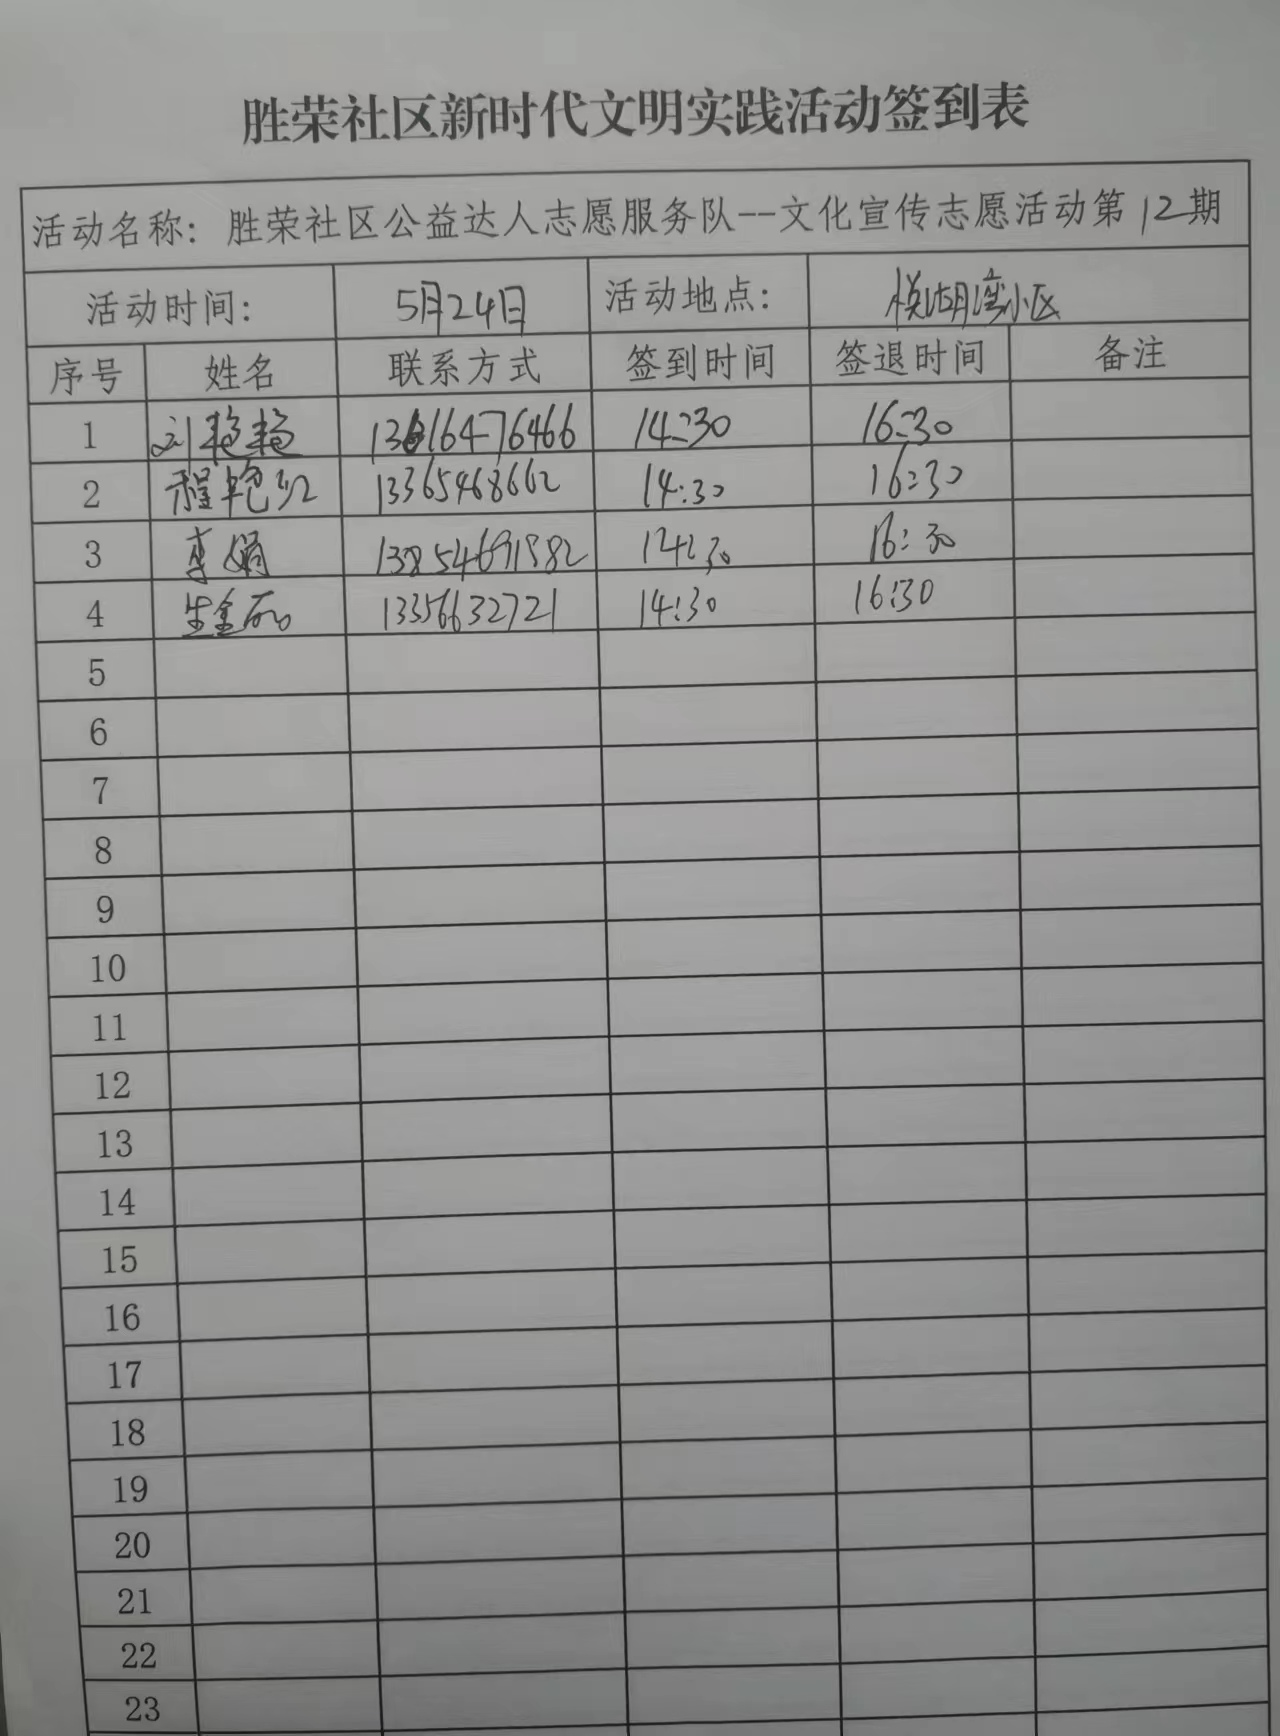 胜荣社区新时代文明实践活动签到表
活动名称: 胜荣社区公益达人志愿服务队--文化宣传志愿活动第12期
活动时间: 5月24日 活动地点: 悦湖湾小区
序号 姓名 联系方式 签到时间 签退时间 备注
1 刘艳艳 14:30 16:30
2 程艳红 13365468662 14:30 16:30
3 李娟 13854691582 14:30 16:30
4 生金 13356632721 14:30 16:30
5
6
7
8
9
10
11
12
13
14
15
16
17
18
19
20
21
22
23